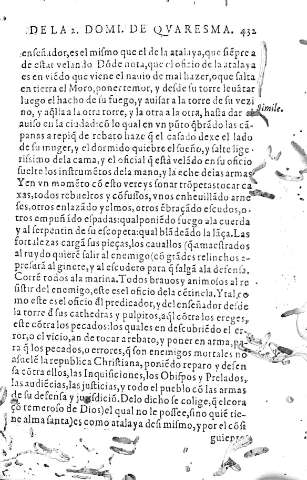 DE LA 2. DOMI. DE QVARESMA. 432
enseñador, es el mismo que el de la atalaya, que siẽpre a
de estar velando. Dõde nota, que el oficio de la atalaya
es en viẽdo que viene el nauio de mal hazer, o que salta
en tierra el Moro, poner temor, y desde su torre leuãtar
luego el hacho de su fuego, y auisar a la torre de su vezi
no, y aq̃lla a la otra torre, y la otra a la otra, hasta dar
auiso en la ciudad: cõ lo qual en vn pũto q̃brãdo las cã-
panas a repiq̃ de rebato haze q̃ el casado dexe el lado
de su muger, y el dormido quiebre el sueño, y salte lige-
rissimo de la cama, y el oficial q̃ està velãdo en su oficio
suelte los instrumẽtos de la mano, y la eche de las armas
Simile.
Y en vn momẽto cõ esto vereys sonar trõpetas tocar ca
xas, todos rebueltos y cõfusos, vnos enheuillãdo arne-
ses, otros enlazãdo yelmos, otros ẽbraçãdo escudos, o-
tros empuñãdo espadas: qual poniẽdo fuego a la cuerda
y al serpentin de su escopeta: qual blãdeãdo la lãça. Las
fortalezas cargã sus pieças, los cauallos q̃ amaestrados
al ruydo quierẽ salir al enemigo (cõ grãdes relinchos e-
presarã al ginete, y al escudero para q̃ salga a la defensa.
Corrẽ todos a la marina. Todos brauos y animosos al re
sistir del enemigo, este es el oficio de la cẽtinela. Y tal, co
mo este es el oficio dl predicador, y del enseñador desde
la torre d sus cathedras y pulpitos, aq̃l cõtra los ereges,
este cõtra los pecados: los quales en descubriẽdo el er-
ror, o el vicio, an de tocar a rebato, y poner en arma, pa
ra q̃ los pecados, o errores, q̃ son enemigos mortales no
assuelẽ la republica Christiana, poniẽdo reparo y defen
sa cõtra ellos, las Inquisiciones, los Obispos y Prelados,
las audiẽcias, las justicias, y todo el pueblo cõ las armas
de su defensa y jurisdiciõ. De lo dicho se colige, q̃ el cora
çõ temeroso de Dios (el qual no le possee, sino quiẽ tie-
ne alma santa) es como atalaya de si mismo, y por el cõsi
guiente